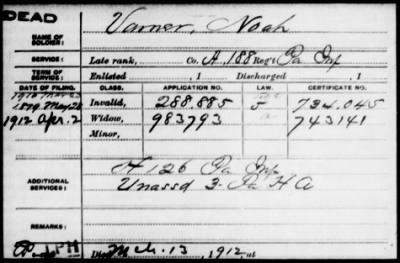 DEAD
NAME OF SOLDIER: Varner, Noah
SERVICE: Late rank, Co. A, 188 Reg't Pa Inf
TERM OF SERVICE: Enlisted , 1 Discharged , 1
DATE OF FILING. CLASS. APPLICATION NO. LAW. CERTIFICATE NO.
1879 May 28 Invalid, 288.885 734.045
1912 Apr. 2 Widow, 983793 743141
Minor,
ADDITIONAL SERVICES: H 126 Pa Inf
Unassd 3- Pa H A
REMARKS:
Died Mch. 13, 1912, at